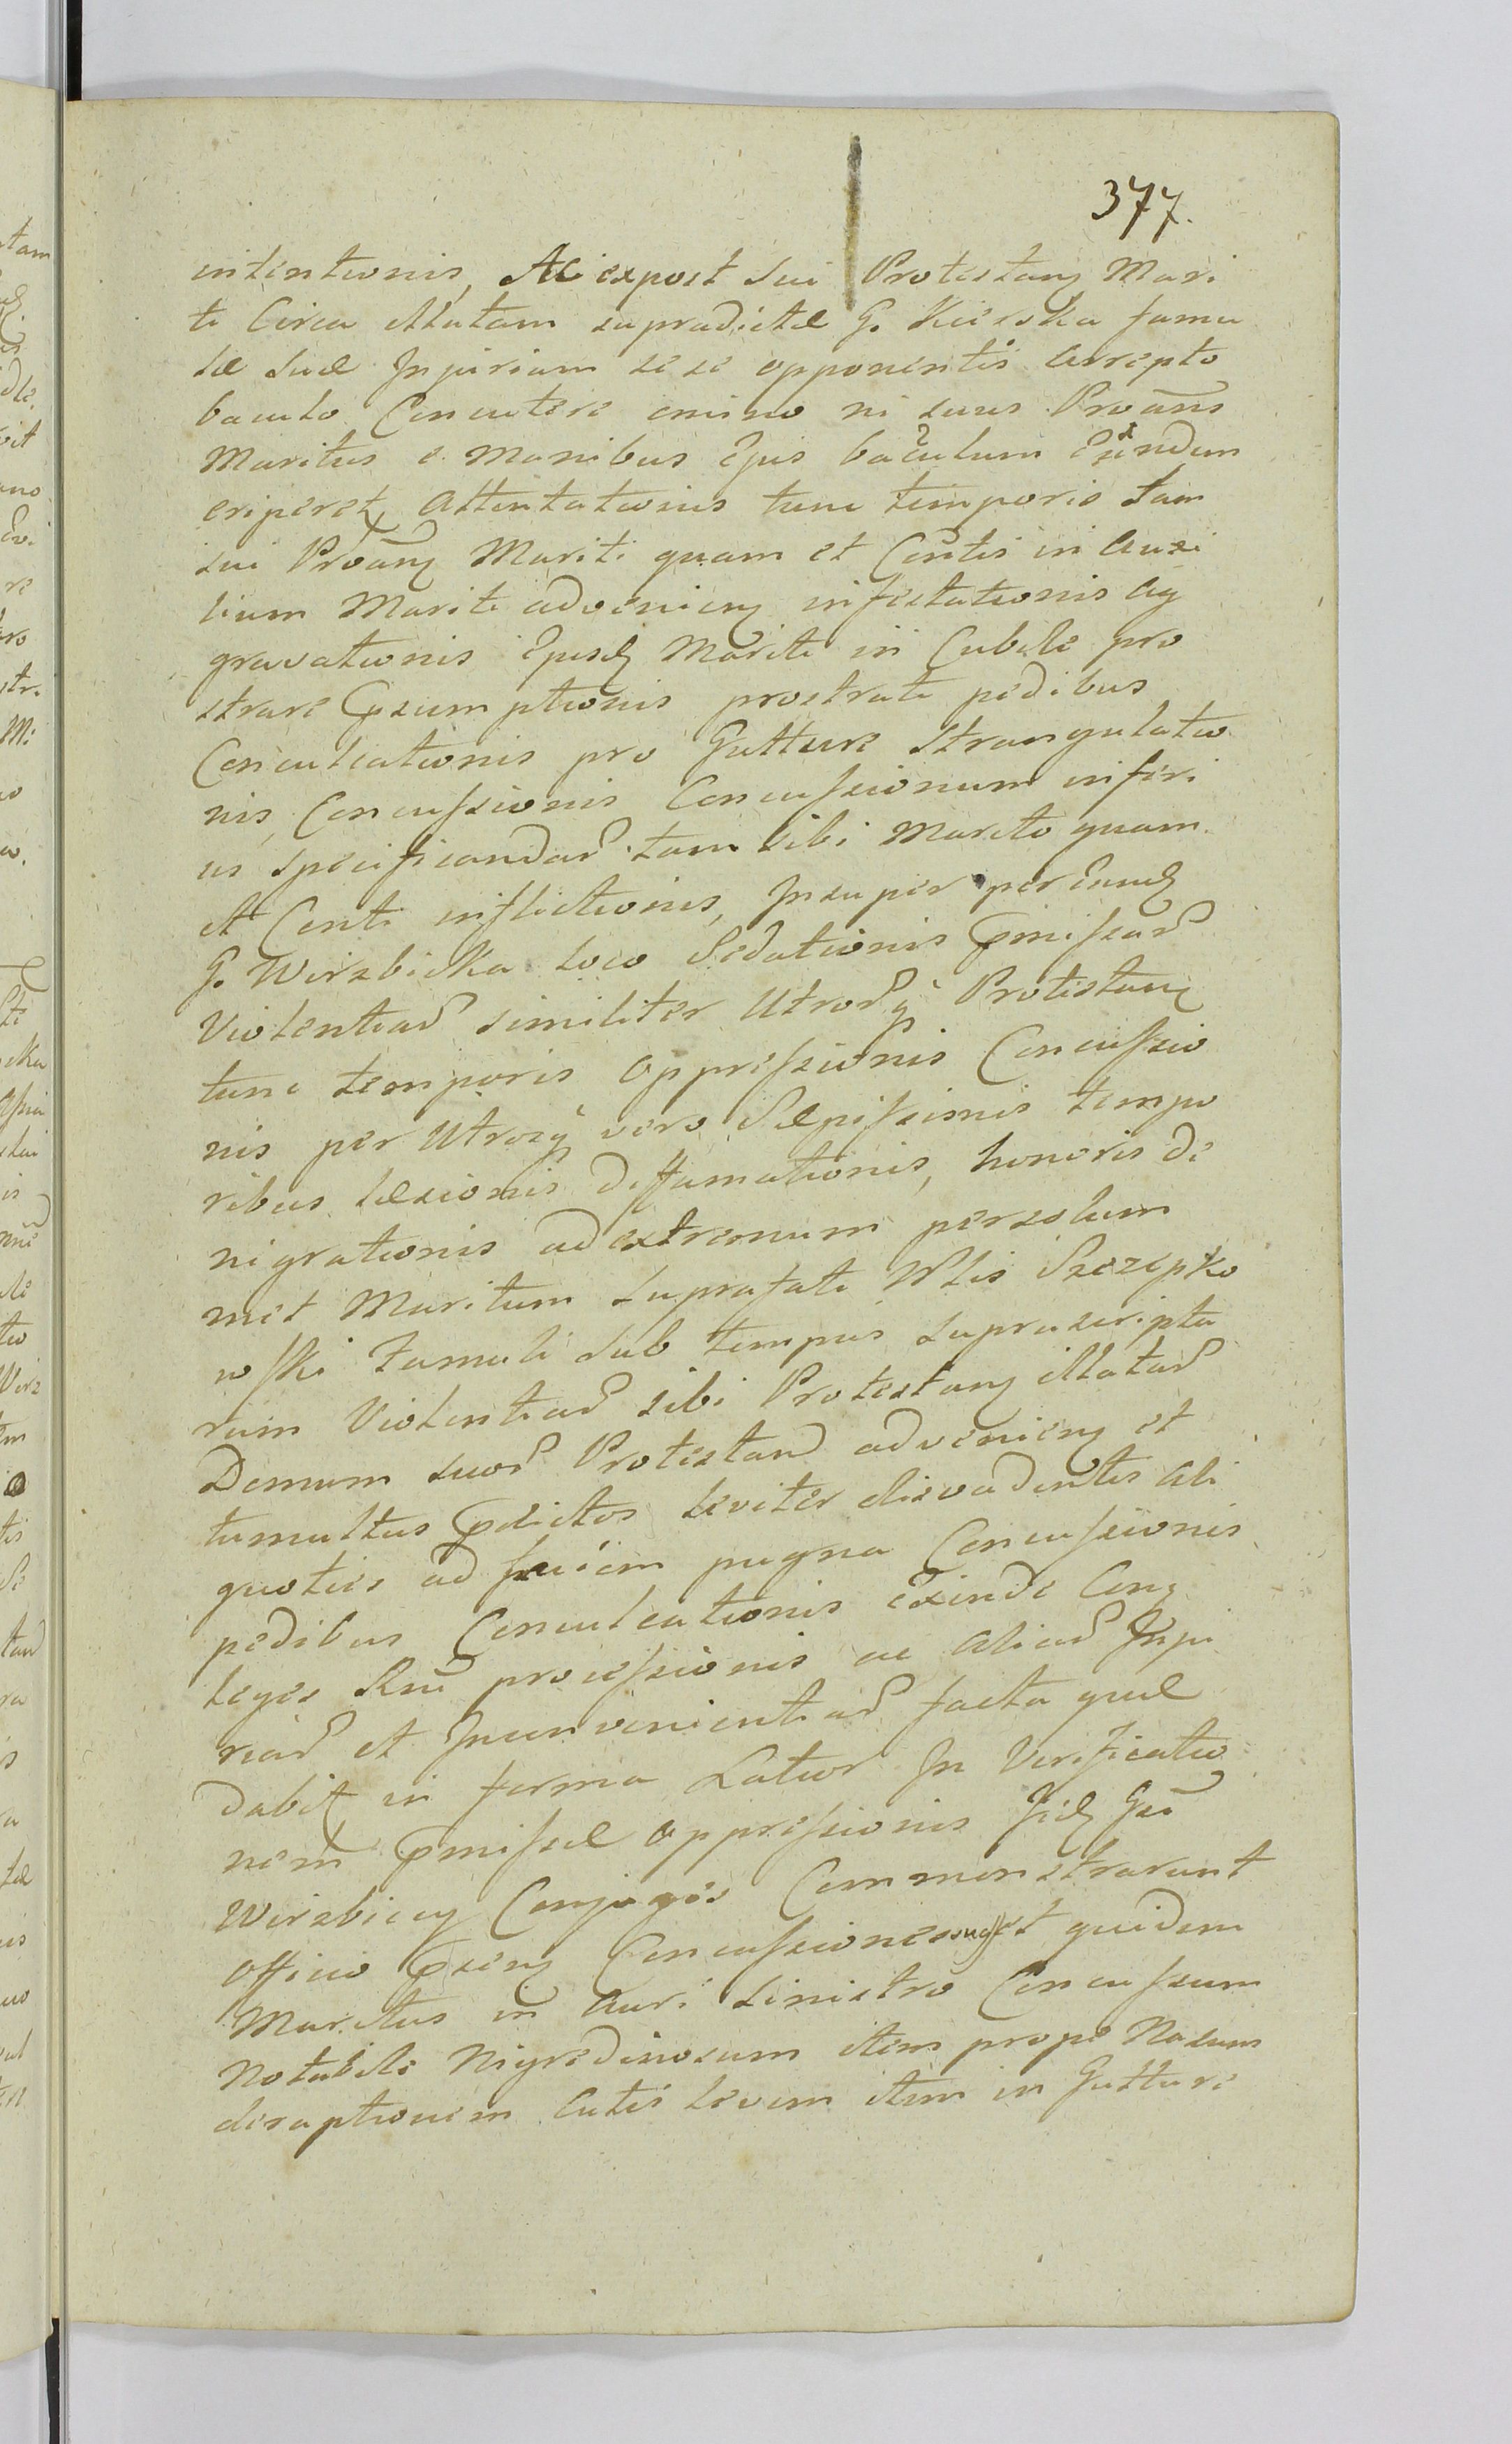 377.
intentionis, Ac expost sui Protestanꝫ Mari
ti Circa illatam supradictæ G. Kierska famu
læ suæ Injuriam sese opponentis arrepto
baculo Concutere omino ni suus Proãns
Maritus e Manibus Ejus baculum Eundem
eriperet, Attentationis tunc temporis tam
sui Proãnꝫ Mariti quam et Contis in Auxi
lium Mariti advenienꝫ infestationis ag
gravationis Ejusdꝫ Mariti in Cubile pro
strare Præsumptionis prostrati pedibus
Conculcationis pro Gutture strangulatio
nis, Concussionis Concussionum inferi
us specificandarꝫ tam sibi Marito quam
et Conti inflictionis, Insuper per Eundꝫ
G. Wirzbicka loco Sedationis Præmissarꝫ
Violentiarꝫ similiter Utrorꝫꝗ Protestanꝫ
tunc temporis oppressionis Concussio
nis per Utrosꝗ vero Sæpissimis tempo
ribus læsionis diffamationis, honoris de
nigrationis ad extremum persolum
met Maritum suprafati Mfci Szczepko
wski famuli sub tempus suprascripta
rum Violentiarꝫ sibi Protestanꝫ illatarꝫ
Domum suorꝫ Protestanꝫ advenienꝫ et
tumultus Prædictos leviter dissvadentis ali
quoties ad faciem pugna Concussionis
pedibus Conculcationis exinde Conꝫ
leges Regni processionis ac aliarꝫ Inju
riarꝫ et Inconvenientiarꝫ facta quæ
dabitꝫ in forma Latior In Verificatio
nem Præmissæ oppressionis Iidꝫ Gsi
Wirzbiccy Conjuges Commonstrarunt
officio Præsenꝫ Concussiones suas et quidem
Maritus in Auri sinistro Concussum
Notabile Nigredinosum item prope Nasum
diruptionem Cutis levem item in Gutture